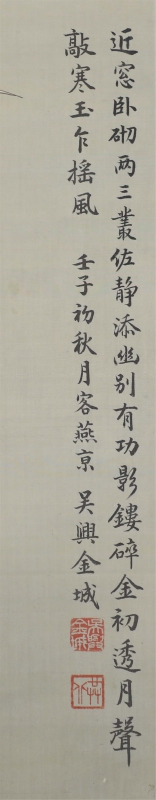 近窓卧砌两三叢佐静添幽别有功影鏤碎金初透月聲
敲寒玉乍摇風　壬子初秋月客燕京　吴興金城